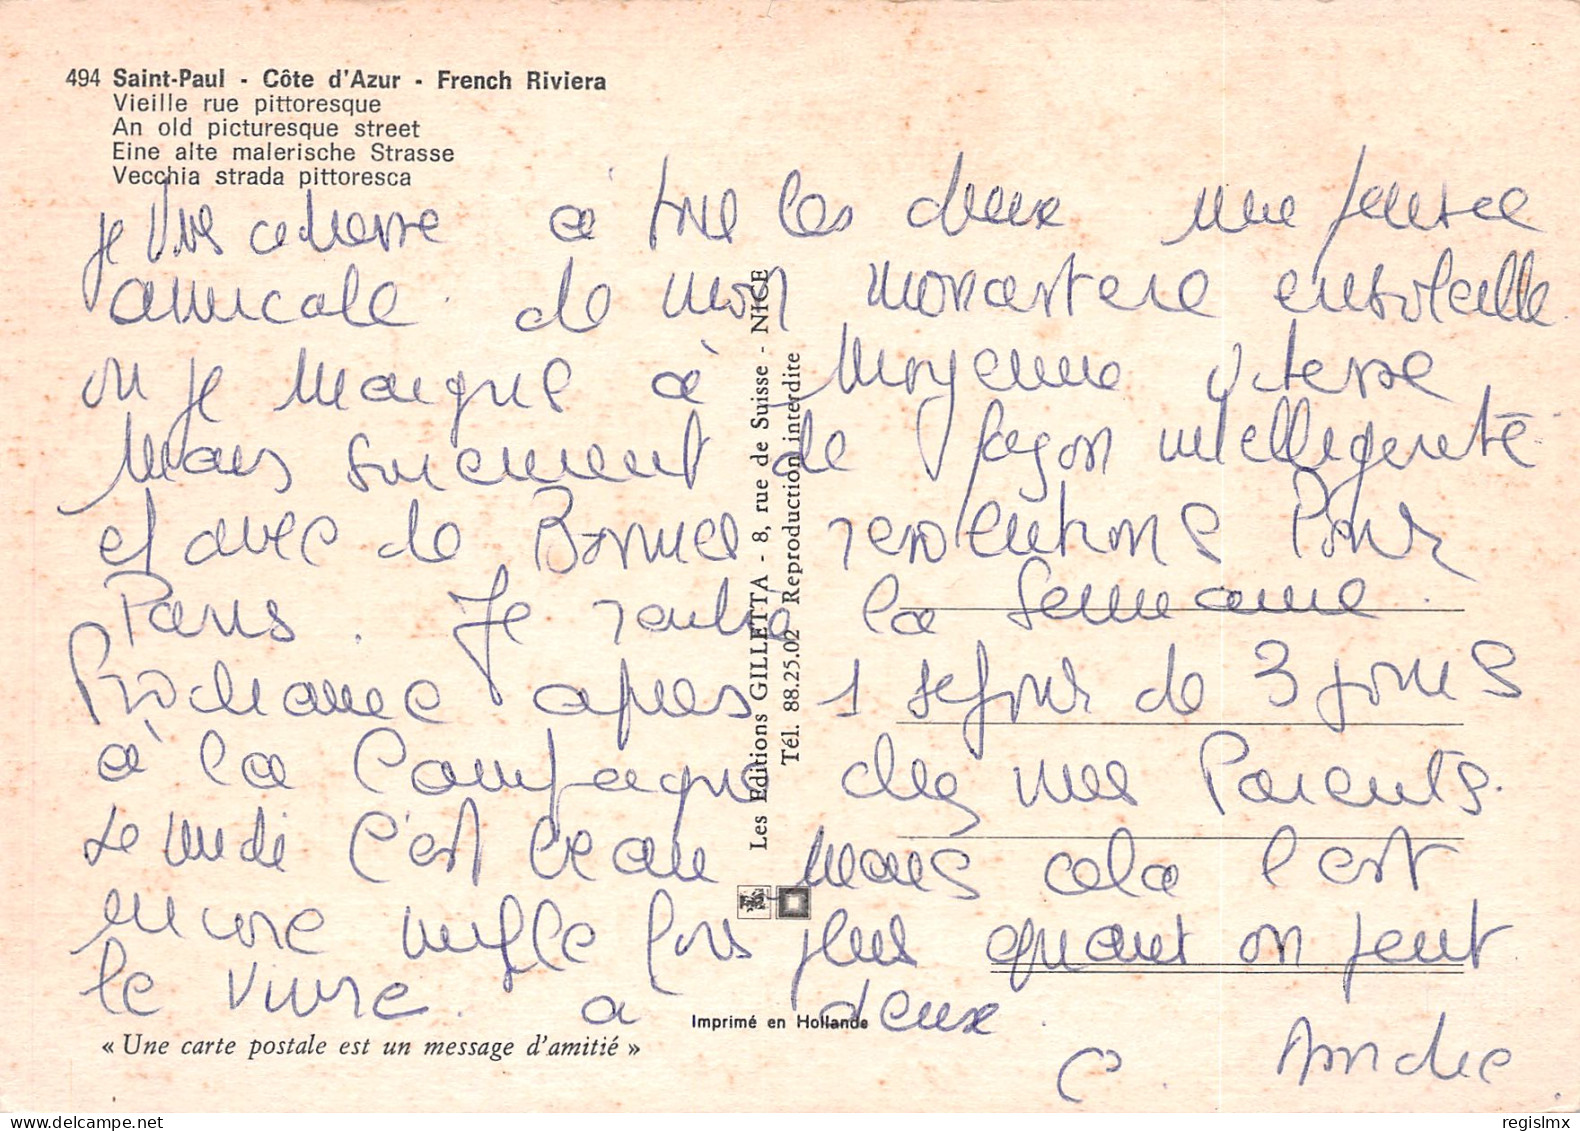 494 Saint-Paul - Côte d'Azur - French Riviera
Vieille rue pittoresque
An old picturesque street
Eine alte malerische Strasse
Vecchia strada pittoresca
je vous adresse à tous les deux une pensée
amicale de mon monastère ensoleillé
où je maigris à moyenne vitesse
mais surement de façon intelligente
et avec de Bonnes resolutions Pour
Paris. Je rentre la Semaine
Prochaine après 1 séjour de 3 jours
à la Campagne chez mes Parents.
Le midi c'est beau mais cela l'est
encore mille fois plus quant on peut
le vivre à deux.
C. Andre
Les Editions GILLETTA - 8, rue de Suisse - NICE
Tél. 88.25.02 Reproduction interdite
Imprimé en Hollande
« Une carte postale est un message d'amitié »
regislmx